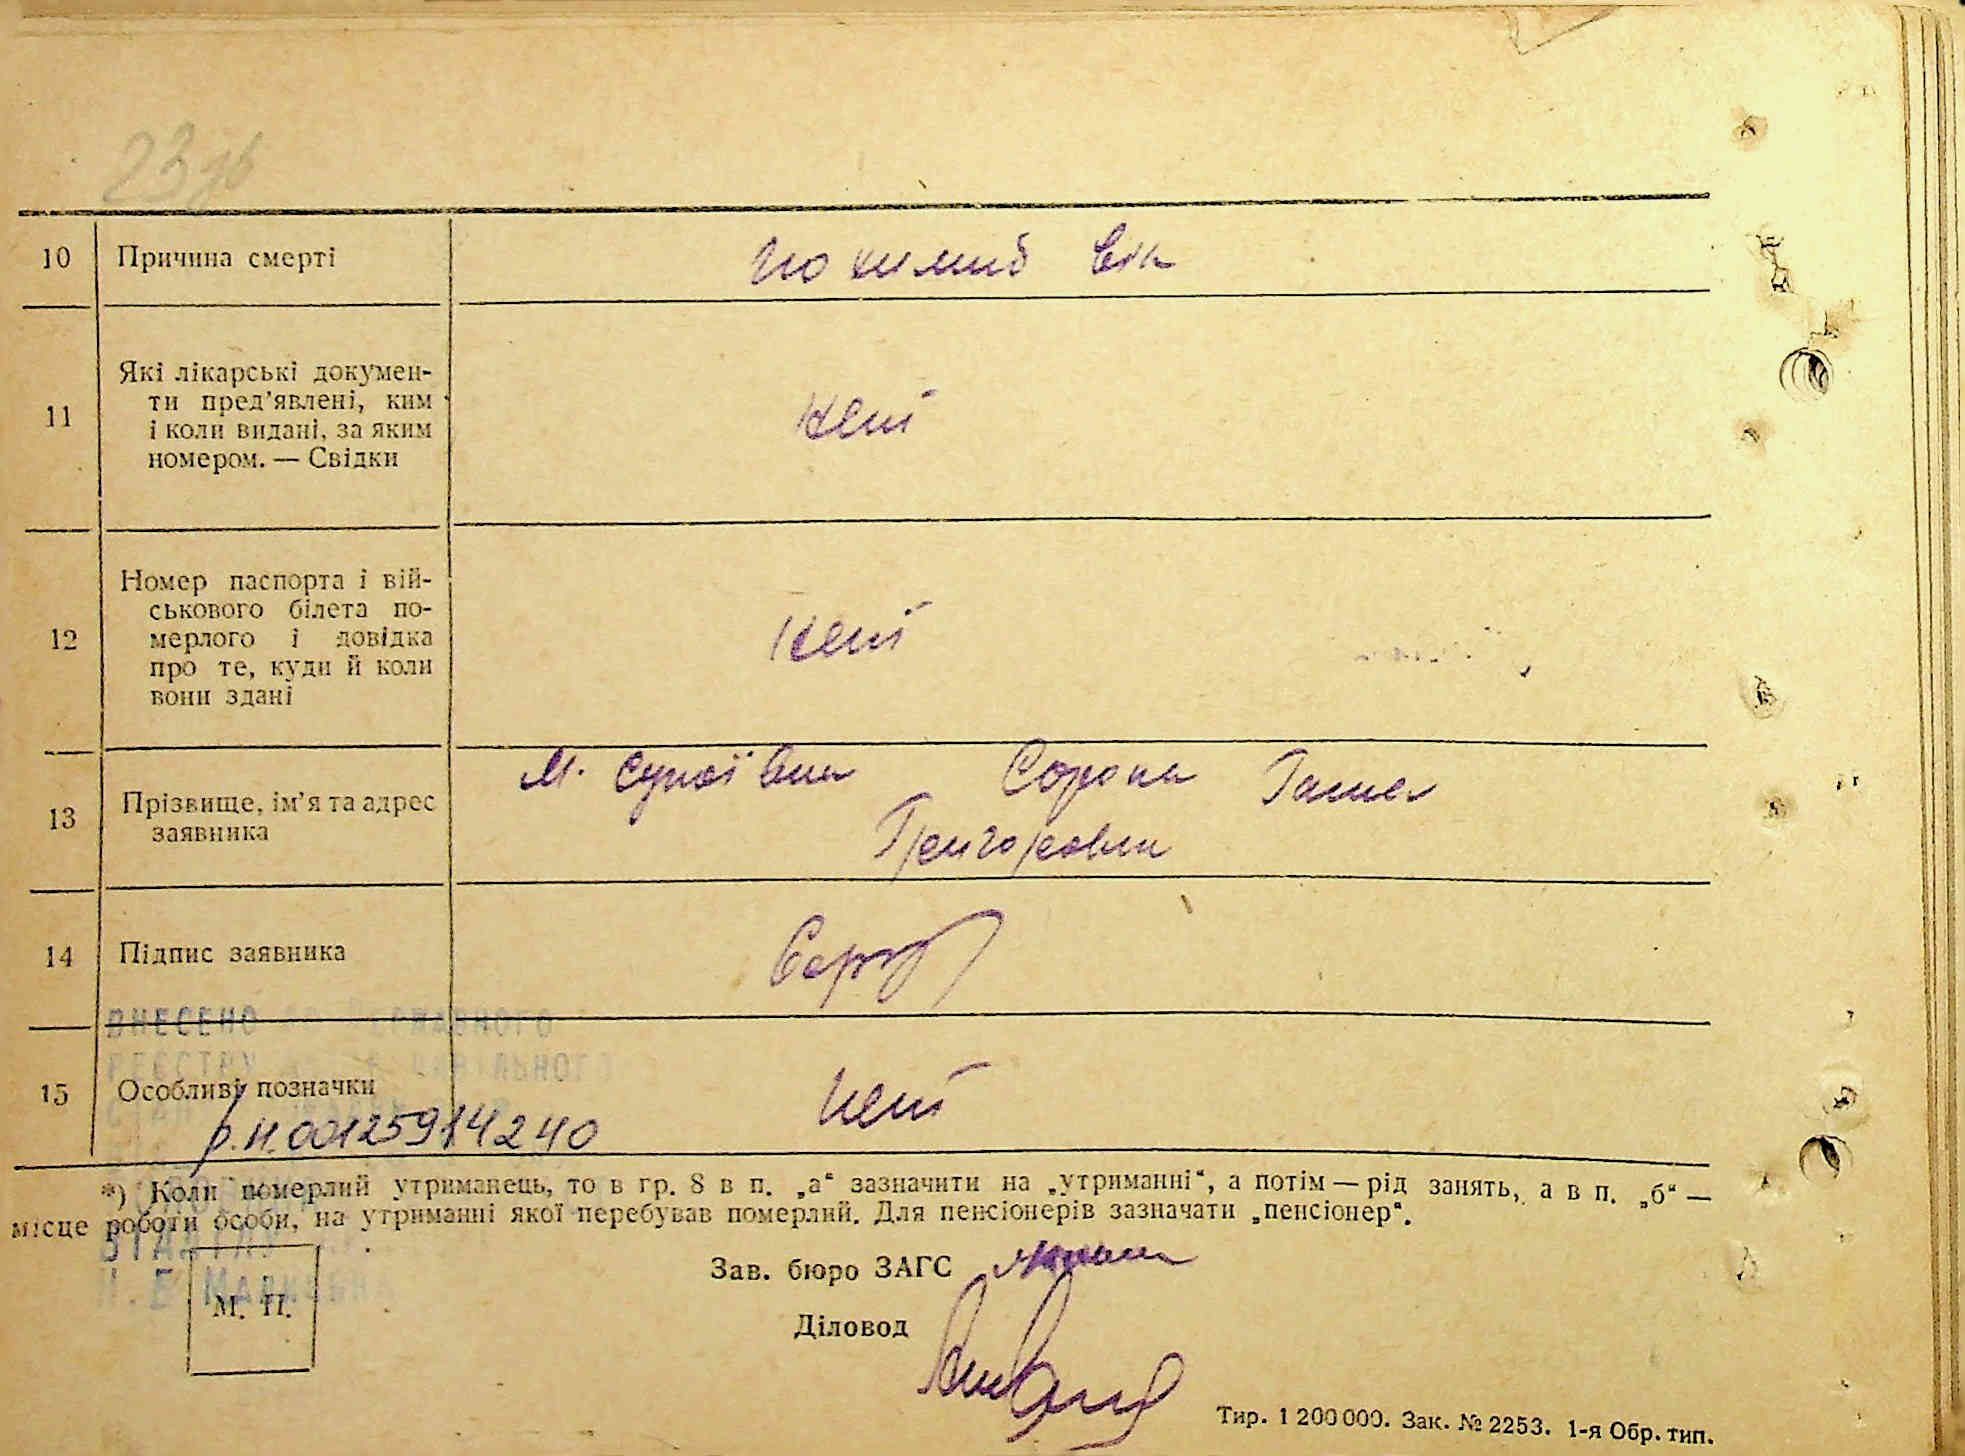 10 Причина смерті похилий вік
11 Які лікарські докумен-
ти пред’явлені, ким
і коли видані, за яким
номером. — Свідки
нет
12 Номер паспорта і вій-
ськового білета по-
мерлого і довідка
про те, куди й коли
вони здані
нет
13 Прізвище, ім’я та адрес
заявника
М. Суньківка Сорока Ганна
Григоровна
14 Підпис заявника
ВНЕСЕНО ДО ДЕРЖАВНОГО
РЕЄСТРУ
15 Особливі позначки нет
р.н.00125914240
*) Коли померлий утриманець, то в гр. 8 в п. „а“ зазначити на „утриманні“, а потім — рід занять, а в п. „б“ —
місце роботи особи, на утриманні якої перебував померлий. Для пенсіонерів зазначати „пенсіонер“.
Зав. бюро ЗАГС
М. П.
Діловод
Тир. 1 200 000. Зак. № 2253. 1-я Обр. тип.